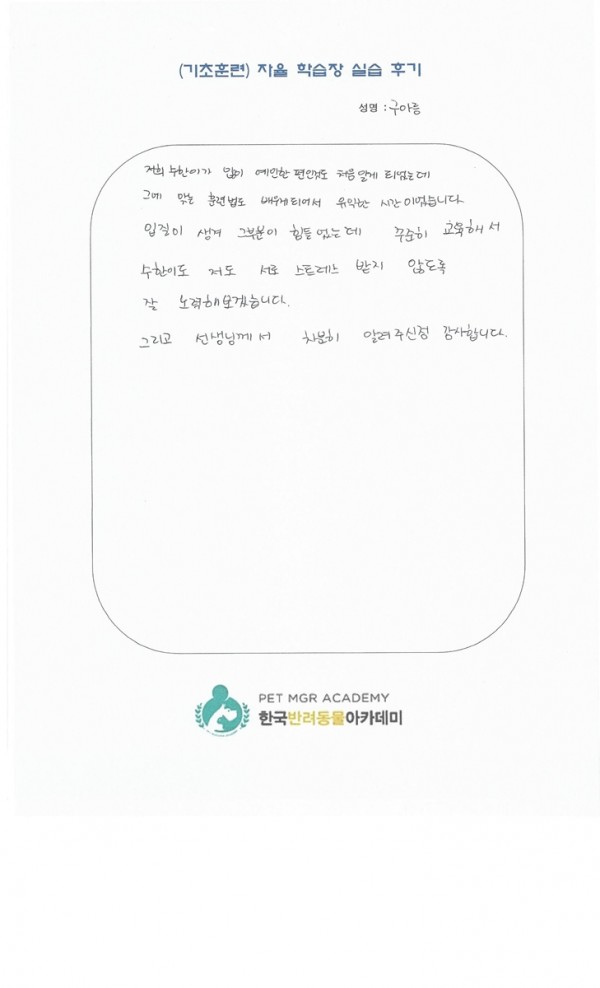 (기초훈련) 자율 학습장 실습 후기
성명 : 구아름
저희 수한이가 많이 예민한 편인것도 처음 알게 되었는데
그에 맞는 훈련법도 배우게되어서 유익한 시간이었습니다
입질이 생겨 그부분이 힘들었는데 꾸준히 교육해서
수한이도 저도 서로 스트레스 받지 않도록
잘 노력해보겠습니다.
그리고 선생님께서 차분히 알려주신점 감사합니다.
PET MGR ACADEMY
한국반려동물아카데미